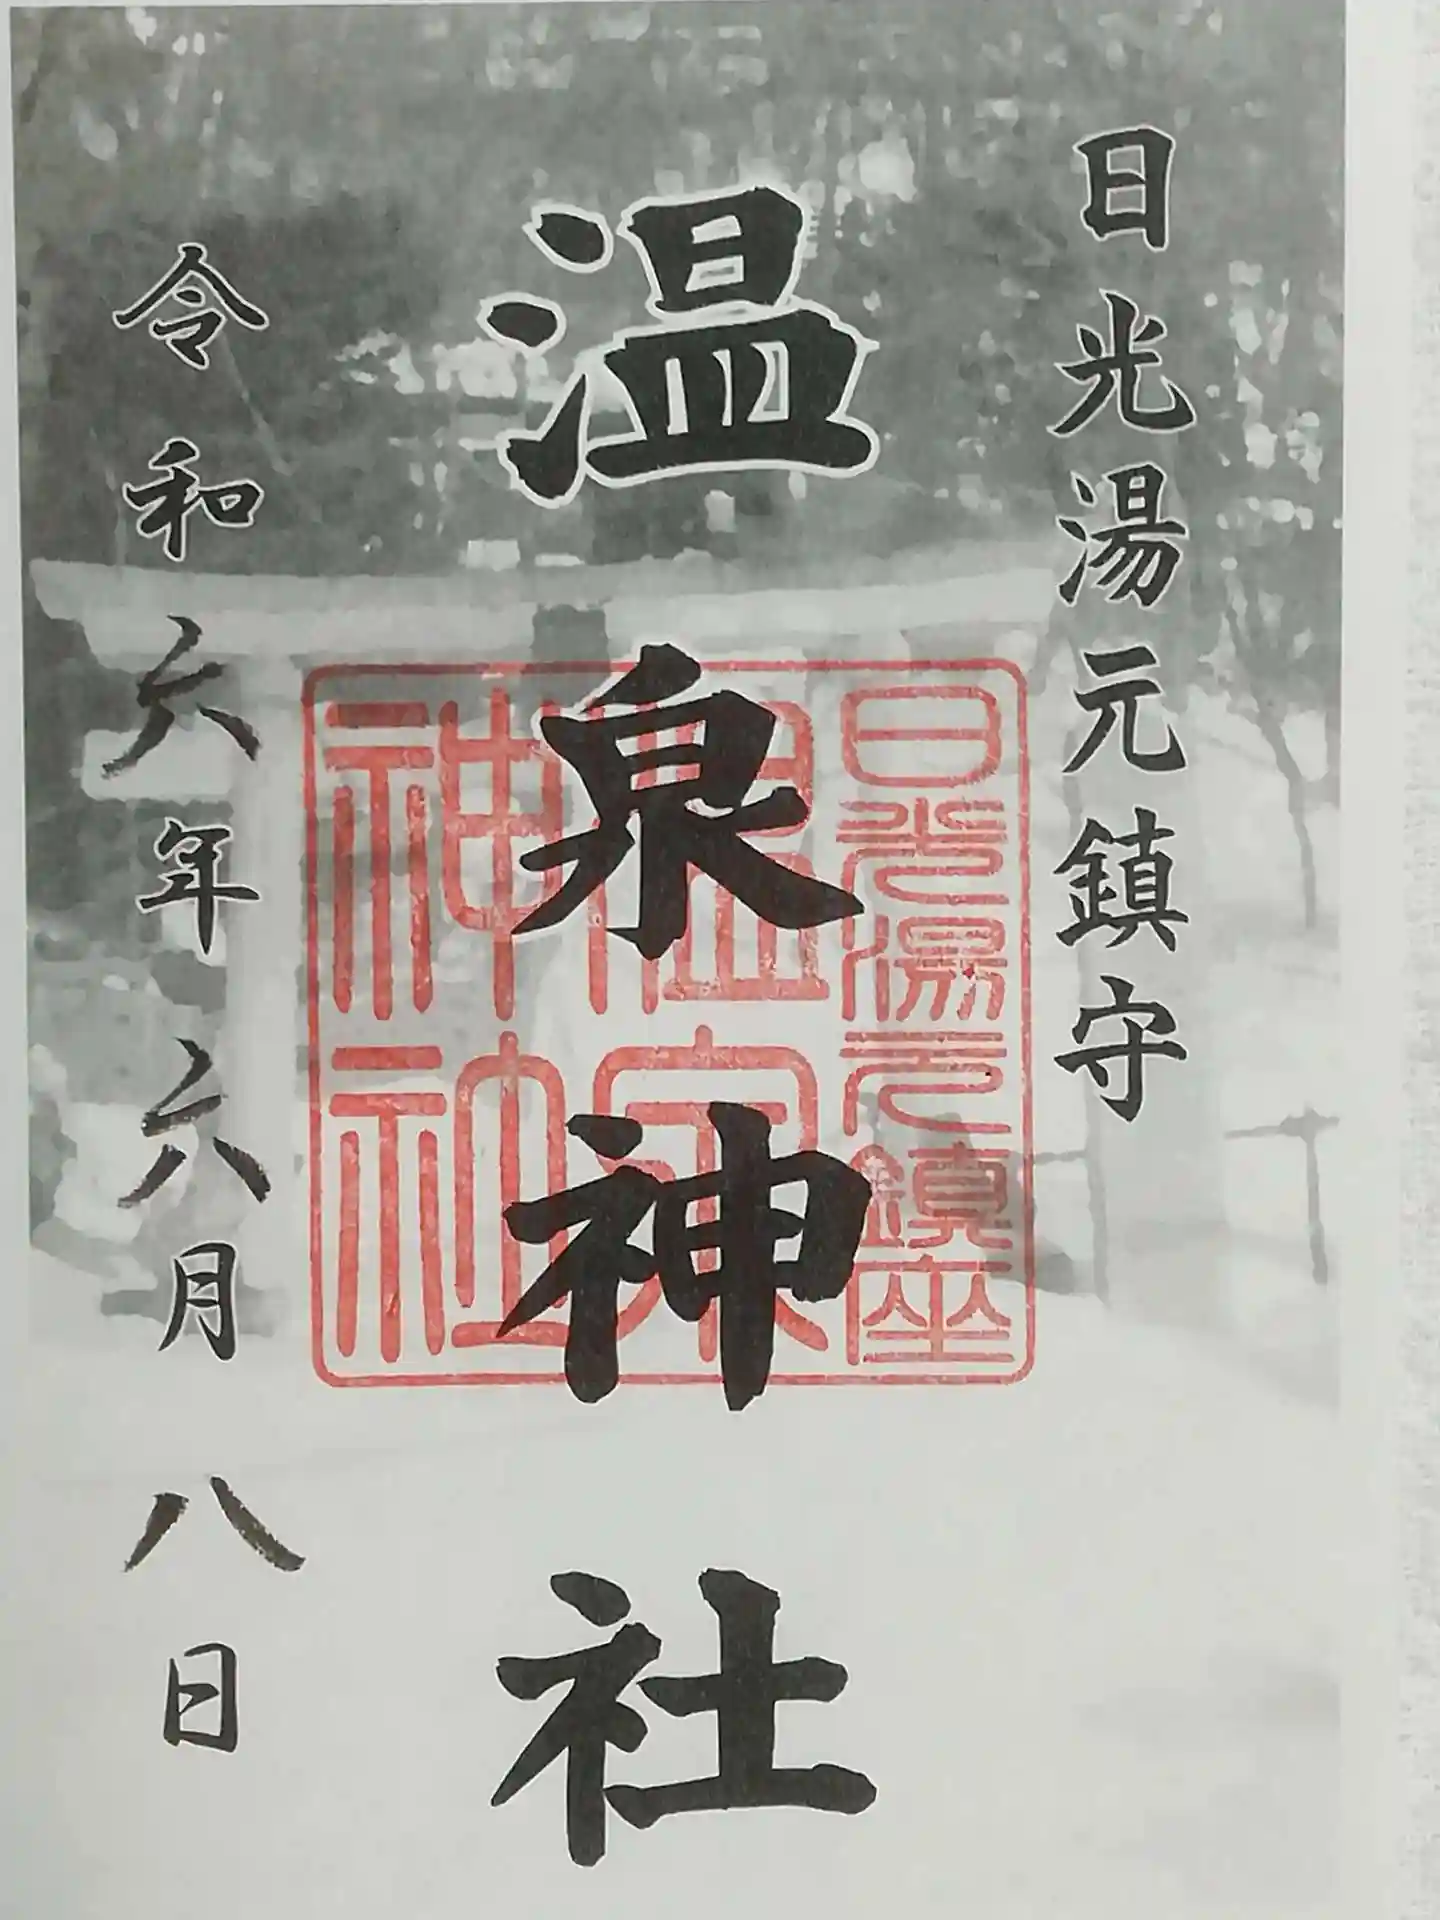 日光湯元鎮守
温泉神社
令和六年六月八日
日光湯元鎮座
温泉
神社